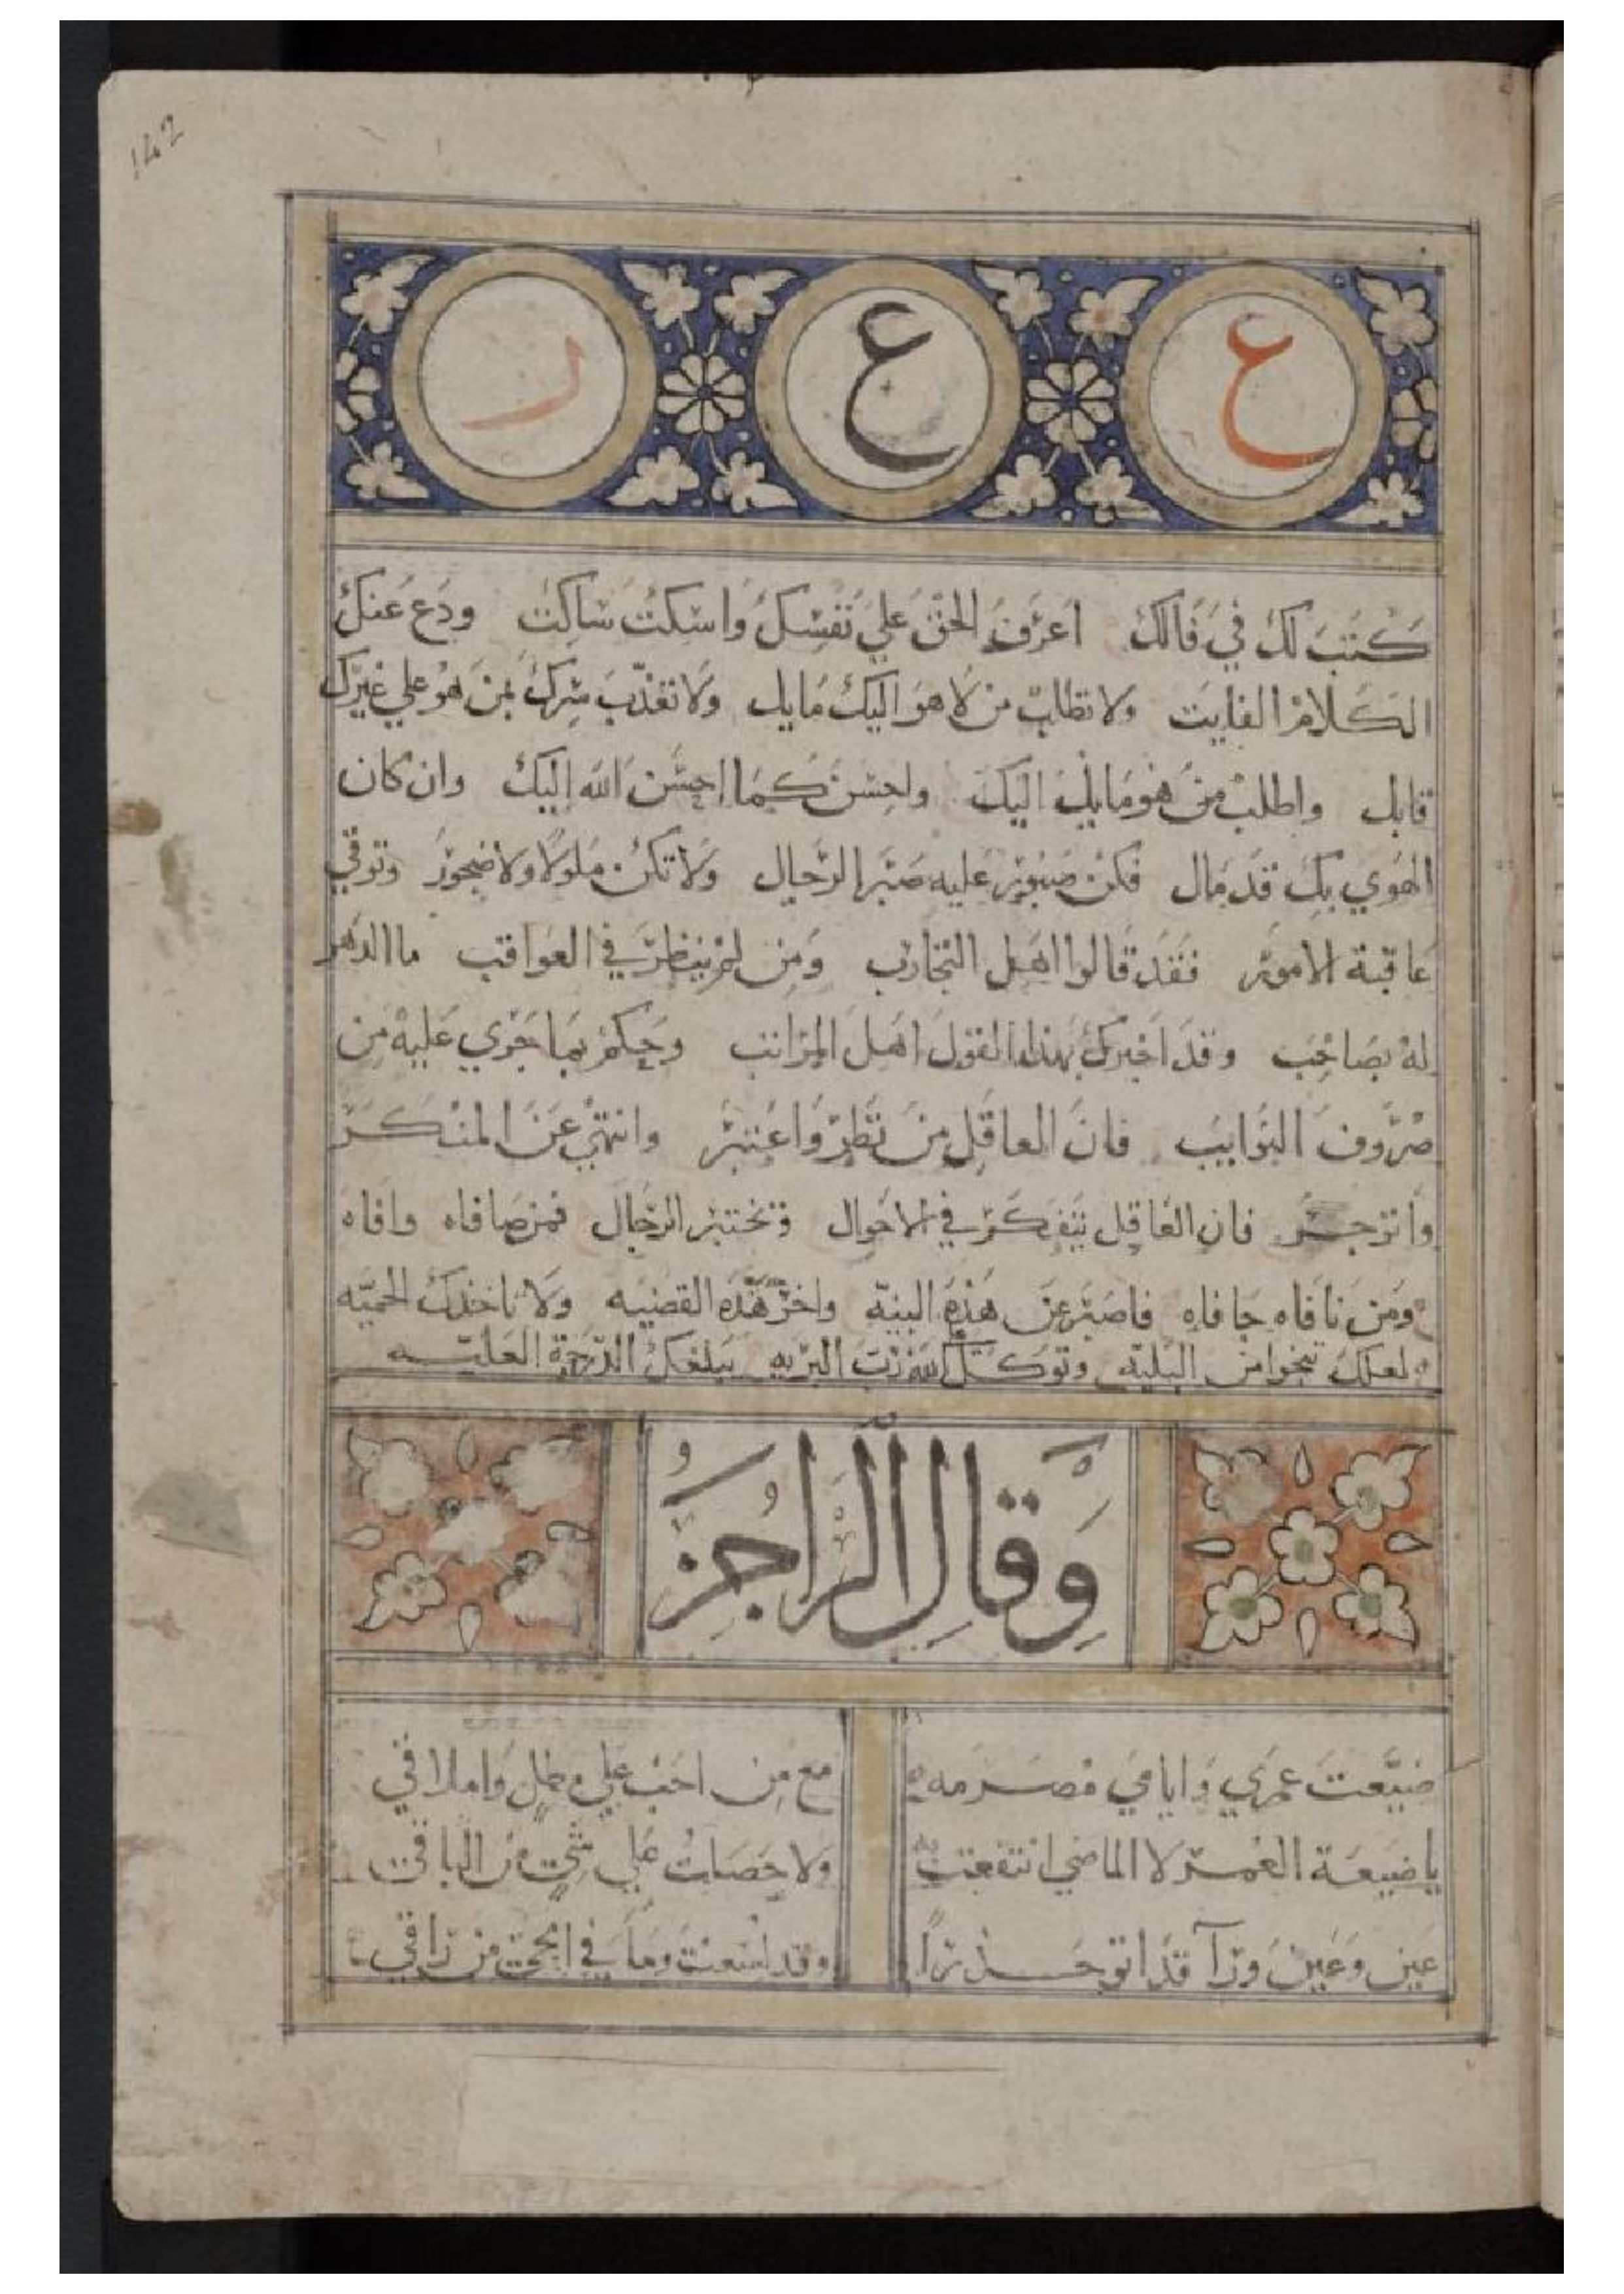 142
ع ع ر
كتب لك في فالك اعرف الحق علي نفسك واسكت ساكت ودع عنك
الكلام الفايت ولا تطلب من لا هو اليك مايل ولا تعذب سرك بمن هو علي غيرك
قابل واطلب من هو مايل اليك واحسن كما احسن الله اليك وان كان
الهوي بك قد مال فكن صبور عليه صبر الرجال ولا تكن ملولا ولا ضجور وتوقي
عاقبة الامور فقد قالوا اهل التجارب ومن لم ينظر في العواقب ما الدهر
له بصاحب وقد اخبرك بهذا القول اهل المراتب وحكم بما جري عليه من
صروف النوايب فان العاقل من نظر واعتبر وانتهي عن المنكر
وانزجر فان العاقل يتفكر في الاحوال وتختبر الرجال فمن صافاه وافاه
ومن نافاه جافاه فاصبر عن هذه البينه واخر هذه القضيه ولا تاخذك الحميه
لعلك تنجوا من البليه وتوكل رب البريه يبلغك الدرجة العليه
وقال الراجز
ضيعت عمري وايامي مصرمه مع من احب علي مطل واملاقي
يا ضيعة العمر لا الماضي انتفعت ولا حصلت علي شي من الباقي
عين وعين ورآ قد اتو حذرا وقد لسعت وما في الحي من راقي